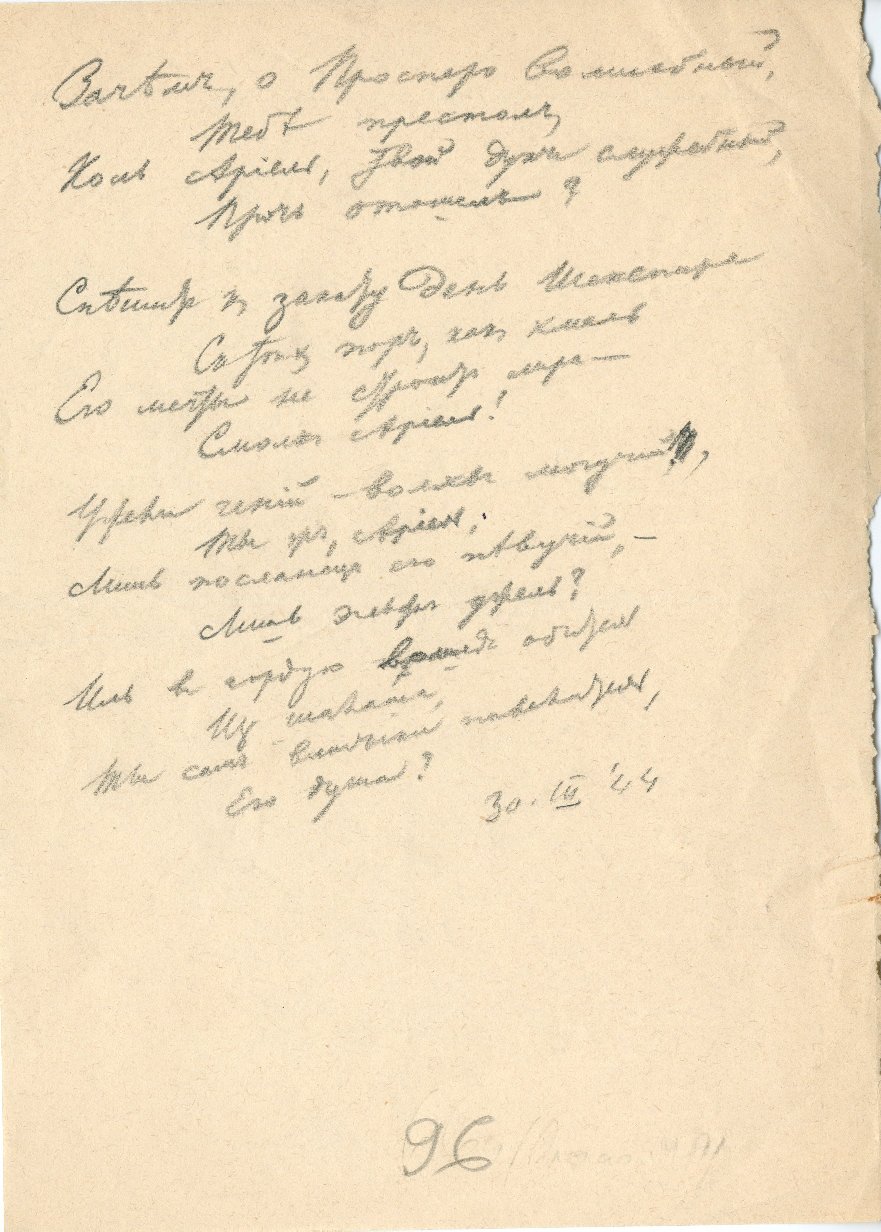 Зачѣмъ, о Просперо волшебный,
Тебѣ престолъ,
Коль Аріель, твой духъ служебный,
Прочь отошелъ?
Спѣшитъ къ закату день Шекспира
Съ тѣхъ поръ, какъ хмель
Его мечты не строитъ мира —
Смолкъ Аріель!
Ужели геній – волхвъ могучій,
Ты жъ, Аріель,
Лишь посланецъ его пѣвучій, —
Лишь эльфъ ужель?
Иль въ гордую обитель
Изъ шалаша,
Ты самъ владыки повелитель,
Его душа?
30. III '44
96